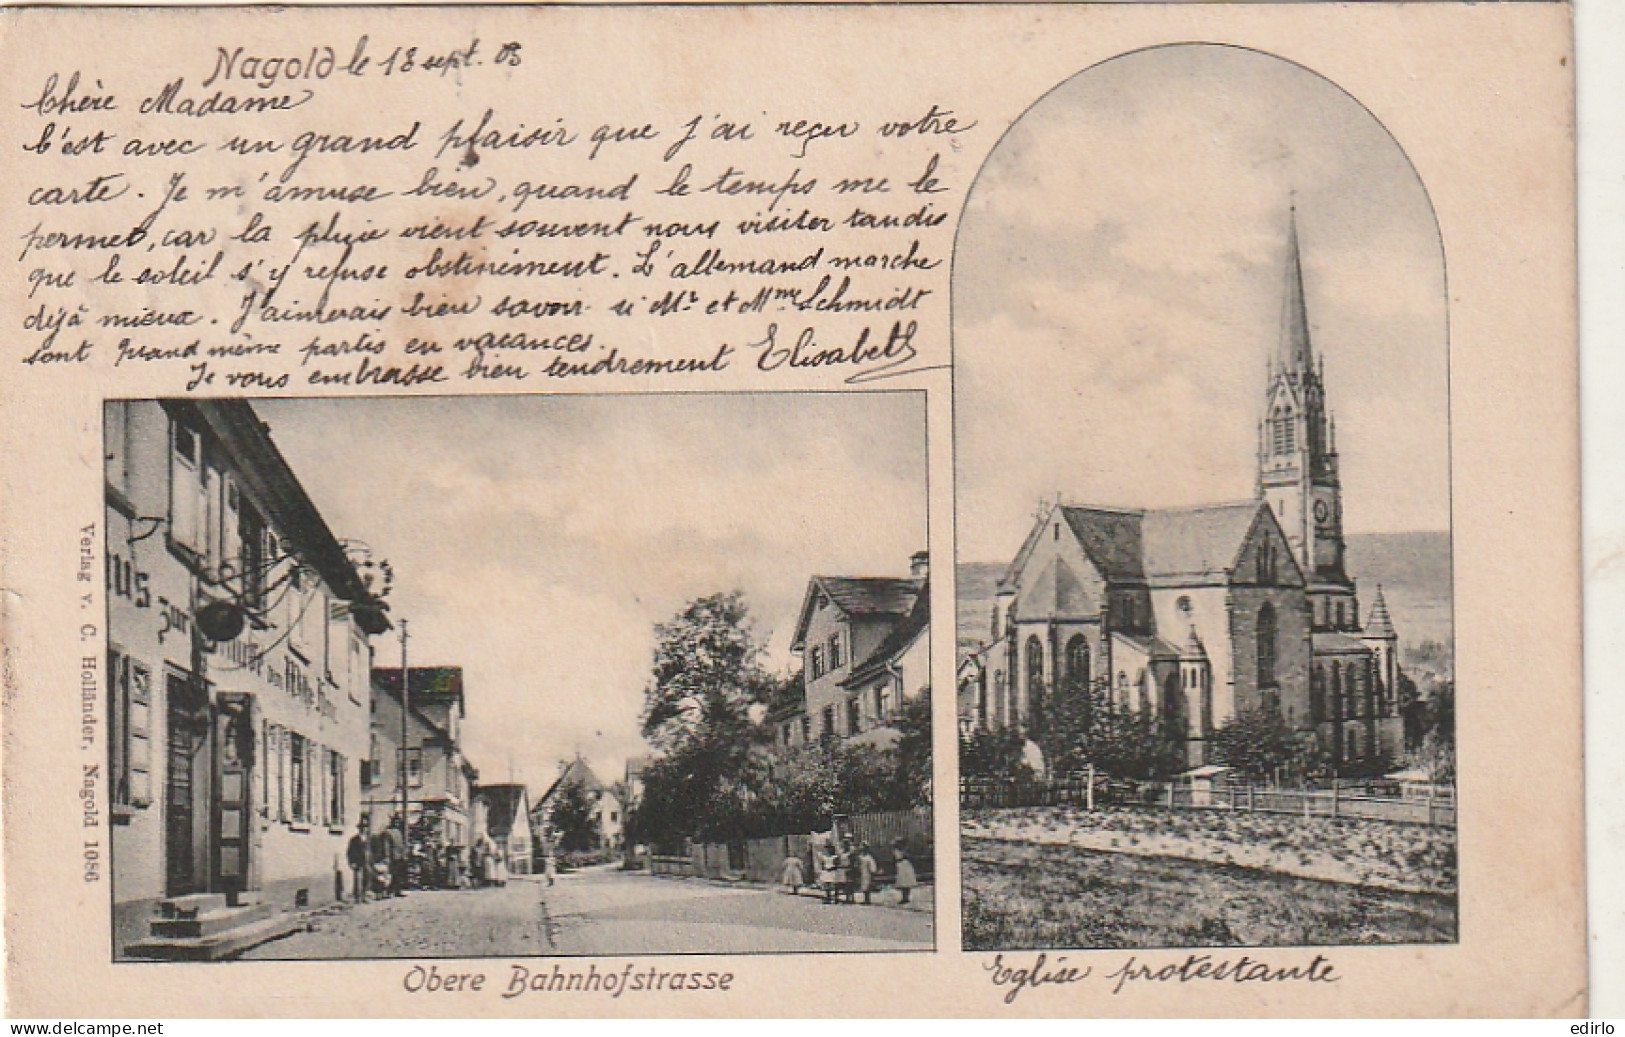 Nagold le 18 sept. 03
Chère Madame
C'est avec un grand plaisir que j'ai reçu votre
carte. Je m'amuse bien, quand le temps me le
permet, car la pluie vient souvent nous visiter tandis
que le soleil s'y refuse obstinément. L'allemand marche
déjà mieux. J'aimerais bien savoir si Mr et Mme Schmidt
sont quand même partis en vacances.
Je vous embrasse bien tendrement Elisabeth
us zur
Verlag v. C. Holländer, Nagold 1086
Obere Bahnhofstrasse
Eglise protestante
www.delcampe.net
edirlo